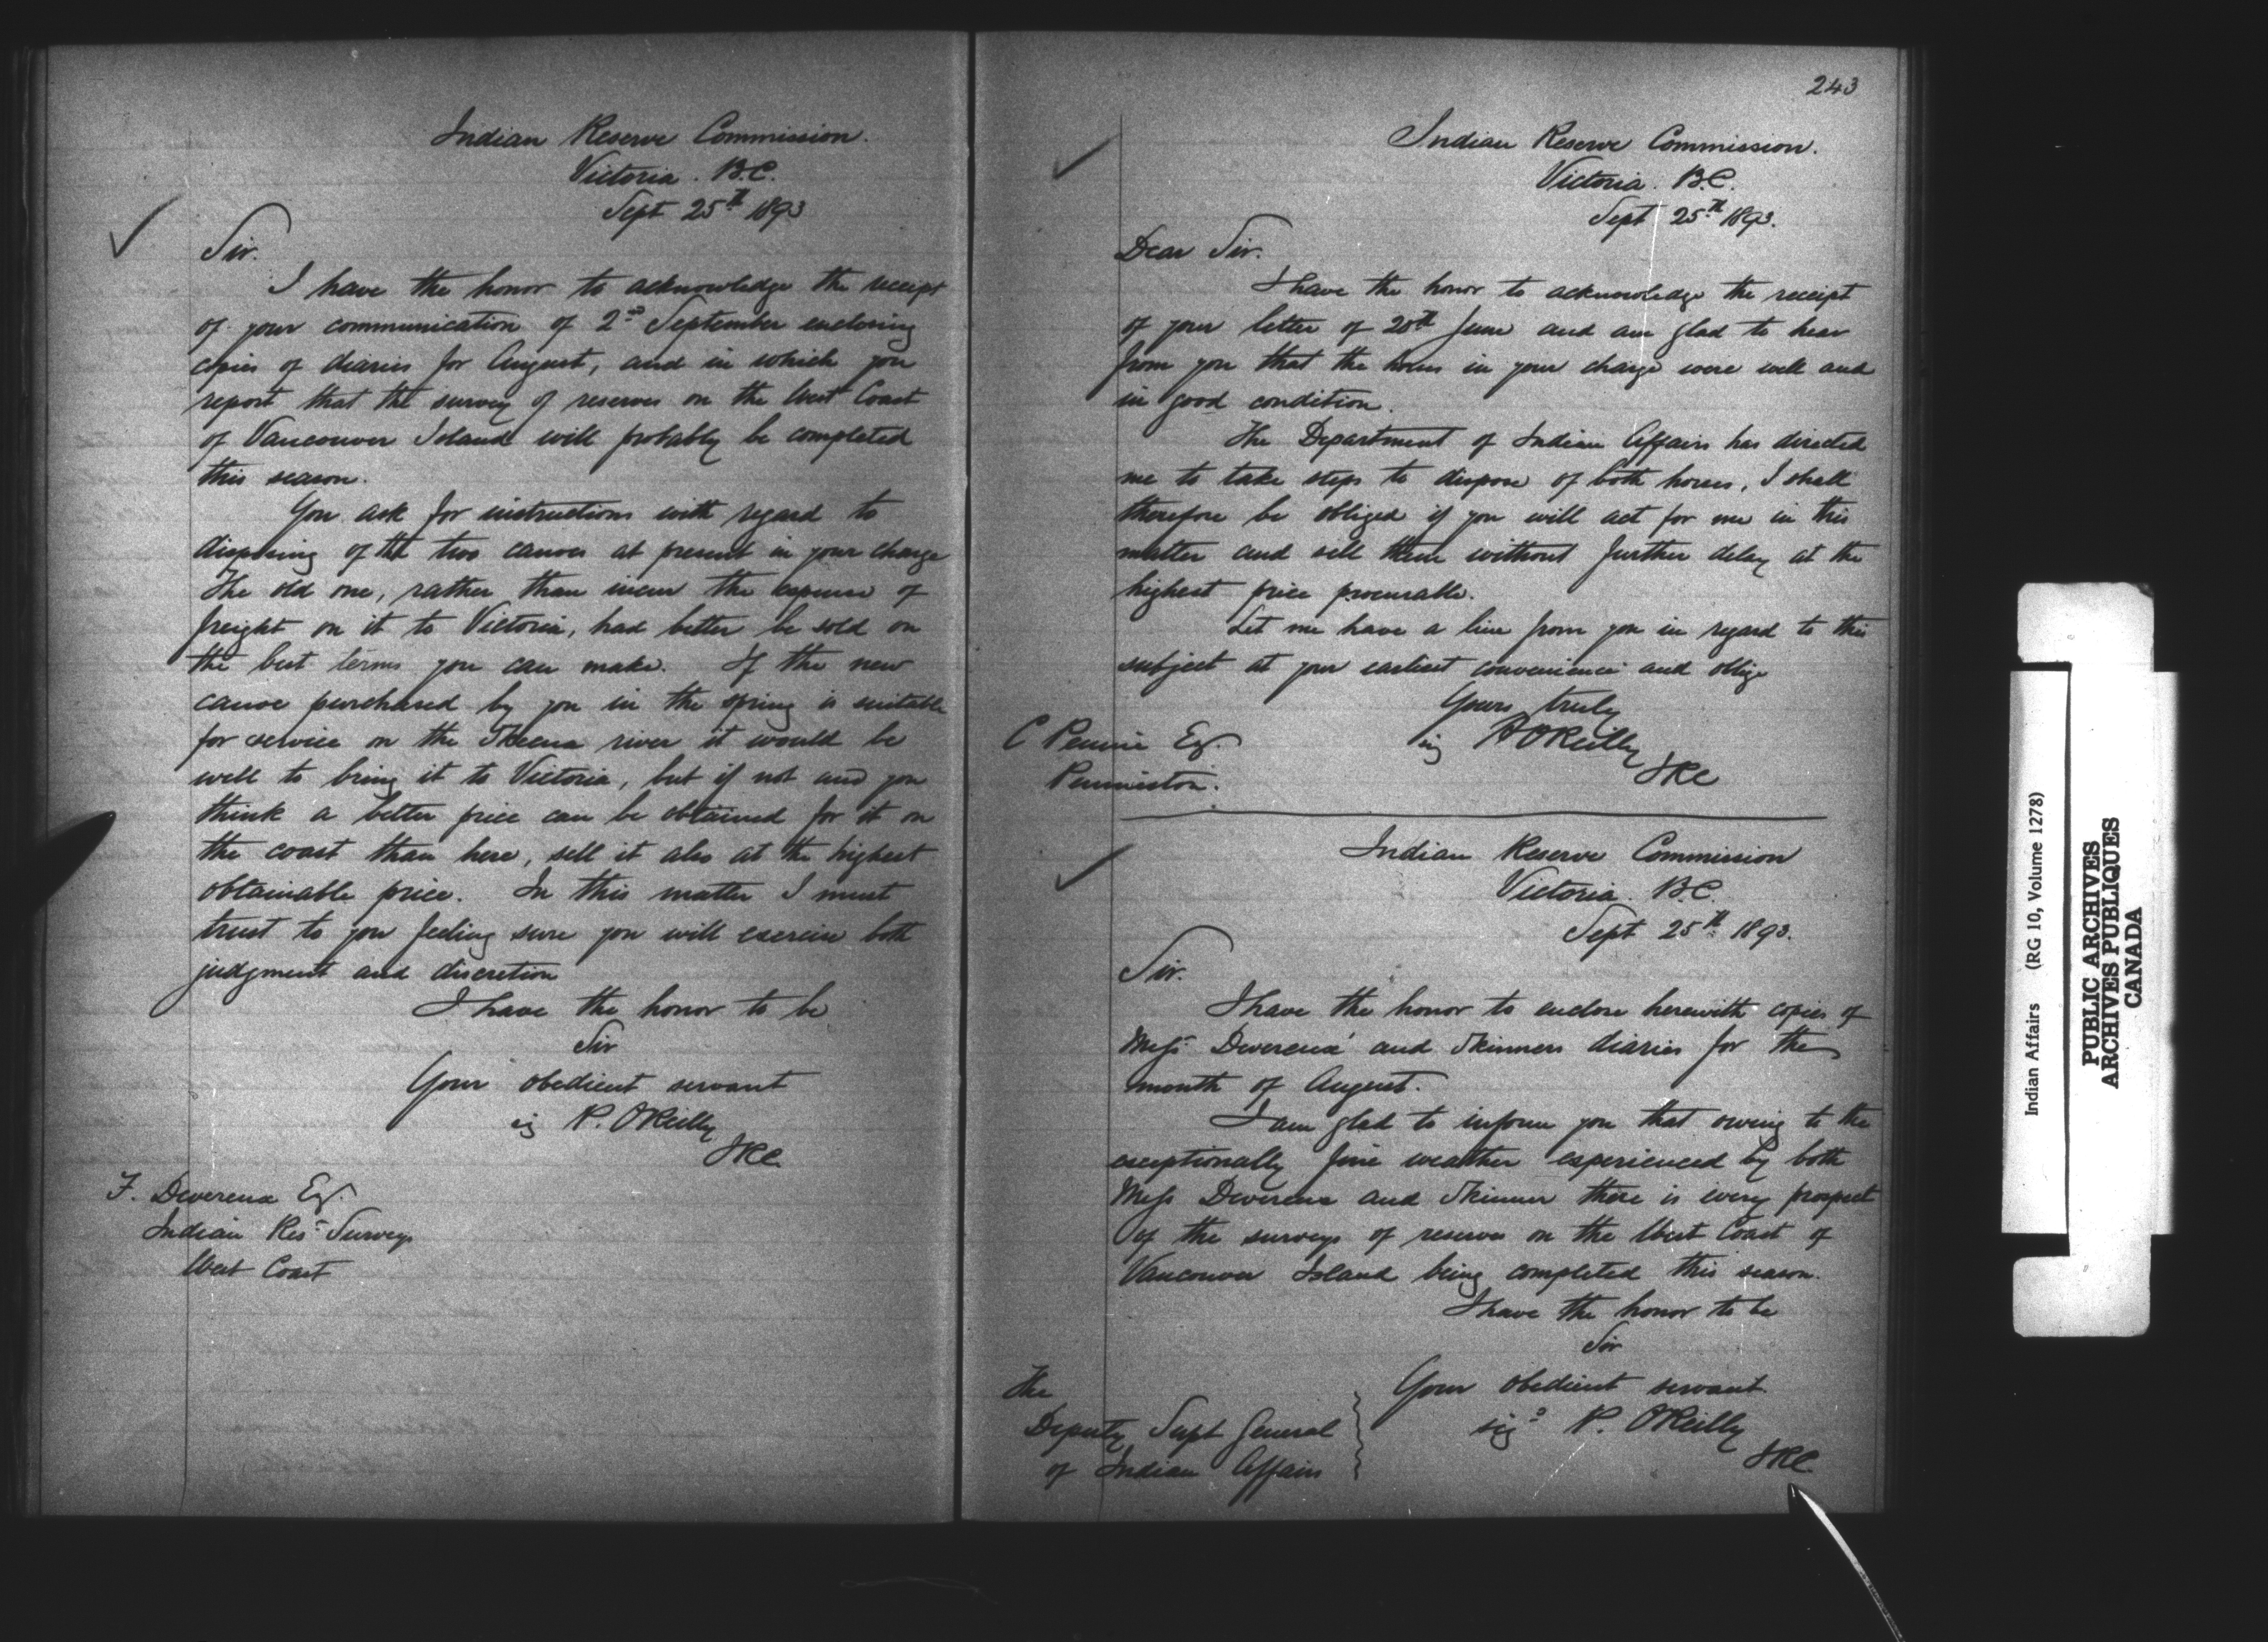 Indian Reserve Commission.
Victoria. B.C.
Sept 25th 1893
Sir.
I have the honor to acknowledge the receipt
of your communication of 2nd September enclosing
copies of diaries for August, and in which you
report that the survey of reserves on the West Coast
of Vancouver Island will probably be completed
this season.
You ask for instructions with regard to
disposing of the two canoes at present in your charge
The old one, rather than incur the expense of
freight on it to Victoria, had better be sold on
the best terms you can make. If the new
canoe purchased by you in the spring is suitable
for service on the Skeena river it would be
well to bring it to Victoria, but if not and you
think a better price can be obtained for it on
the coast than here, sell it also at the highest
obtainable price. In this matter I must
trust to you feeling sure you will exercise both
judgment and discretion
I have the honor to be
Sir
Your obedient servant
sig P. O'Reilly
I.R.C.
F. Devereux Esq.
Indian Res Surveys
West Coast
243
Indian Reserve Commission.
Victoria. B.C.
Sept 25th 1893.
Dear Sir.
I have the honor to acknowledge the receipt
of your letter of 20th June and am glad to hear
from you that the horses in your charge were well and
in good condition.
The Department of Indian Affairs has directed
me to take steps to dispose of both horses, I shall
therefore be obliged if you will act for me in this
matter and sell them without further delay at the
highest price procurable.
Let me have a line from you in regard to this
subject at your earliest convenience and oblige
Yours truly
sig P O'Reilly
IRC
C Pennie Esq.
Penniston.
Indian Reserve Commission
Victoria. B.C.
Sept 25th 1893.
Sir.
I have the honor to enclose herewith copies of
Messrs Devereux' and Skinners diaries for the
month of August.
I am glad to inform you that owing to the
exceptionally fine weather experienced by both
Mess Devereux and Skinner there is every prospect
of the surveys of reserves on the West Coast of
Vancouver Island being completed this season.
I have the honor to be
Sir
Your obedient servant
sigd P. O'Reilly
IRC.
The
Deputy Supt General
of Indian Affairs
Indian Affairs (RG 10, Volume 1278)
PUBLIC ARCHIVES
ARCHIVES PUBLIQUES
CANADA